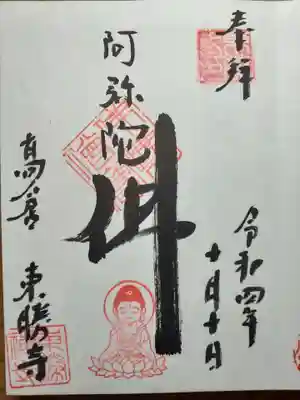 奉拝
令和四年
十月十日
阿弥陀仏
高倉
東勝寺